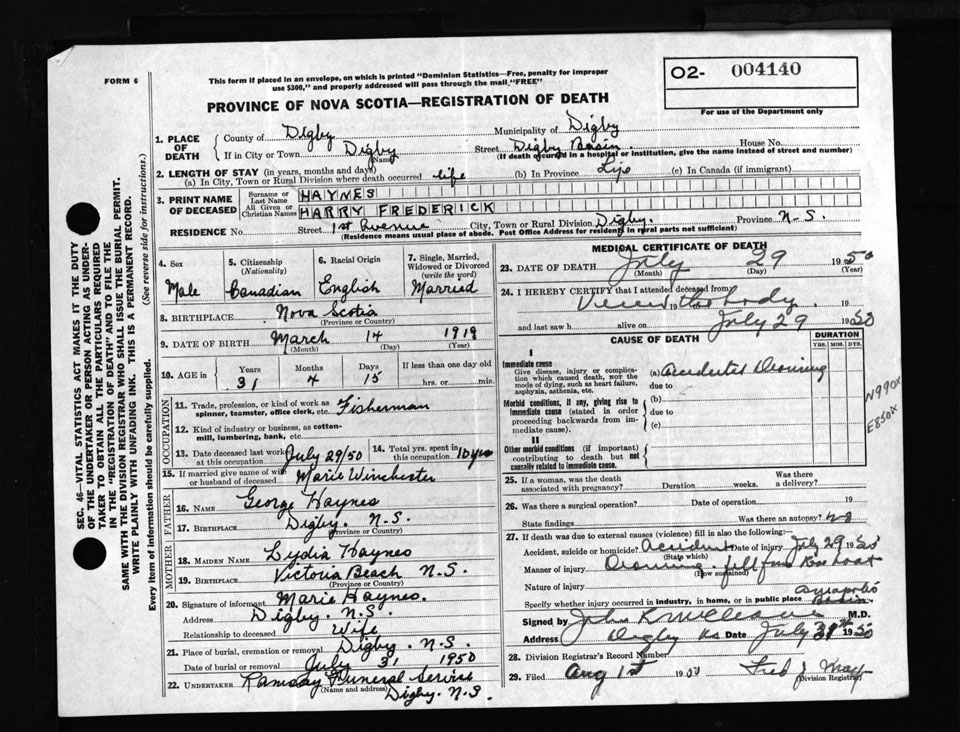 FORM 6
This form if placed in an envelope, on which is printed "Dominion Statistics—Free, penalty for improper
use $300," and properly addressed will pass through the mail "FREE"
O2- 004140
For use of the Department only
PROVINCE OF NOVA SCOTIA—REGISTRATION OF DEATH
1. PLACE OF DEATH County of Digby Municipality of Digby
If in City or Town Digby (Name) Street Digby Basin. House No.
(If death occurred in a hospital or institution, give the name instead of street and number)
2. LENGTH OF STAY (in years, months and days)
(a) In City, Town or Rural Division where death occurred life (b) In Province Life (c) In Canada (if immigrant)
3. PRINT NAME OF DECEASED Surname or Last Name HAYNES
All Given or Christian Names HARRY FREDERICK
RESIDENCE No. Street 1st Avenue City, Town or Rural Division Digby. Province N-S.
(Residence means usual place of abode. Post Office Address for residents in rural parts not sufficient)
4. Sex Male
5. Citizenship (Nationality) Canadian
6. Racial Origin English
7. Single, Married, Widowed or Divorced (write the word) Married
8. BIRTHPLACE Nova Scotia (Province or Country)
9. DATE OF BIRTH March (Month) 14 (Day) 1919 (Year)
10. AGE Years 31 Months 4 Days 15 If less than one day old hrs. or min.
OCCUPATION
11. Trade, profession, or kind of work as spinner, teamster, office clerk, etc. Fisherman
12. Kind of industry or business, as cotton-mill, lumbering, bank, etc.
13. Date deceased last worked at this occupation July 29/50 14. Total yrs. spent in this occupation 10 yrs
15. If married give name of wife or husband of deceased Marie Winchester
FATHER
16. NAME George Haynes
17. BIRTHPLACE Digby. N.S. (Province or Country)
MOTHER
18. MAIDEN NAME Lydia Haynes
19. BIRTHPLACE Victoria Beach N.S. (Province or Country)
20. Signature of informant Marie Haynes.
Address Digby. N.S.
Relationship to deceased Wife
21. Place of burial, cremation or removal Digby. N.S.
Date of burial or removal July 31 1950
22. UNDERTAKER Ramsay Funeral Service
(Name and address) Digby. N.S.
MEDICAL CERTIFICATE OF DEATH
23. DATE OF DEATH July (Month) 29 (Day) 1950 (Year)
24. I HEREBY CERTIFY that I attended deceased from
Viewed the body. 19
and last saw h alive on July 29 1950
CAUSE OF DEATH
DURATION
YRS. MOS. DYS.
I
Immediate cause
Give disease, injury or complication which caused death, not the mode of dying, such as heart failure, asphyxia, asthenia, etc.
(a) Accidental Drowning
due to
Morbid conditions, if any, giving rise to immediate cause (stated in order proceeding backwards from immediate cause).
(b)
due to
(c)
N990X
E850X
II
Other morbid conditions (if important) contributing to death but not causally related to immediate cause.
25. If a woman, was the death associated with pregnancy? Duration weeks. Was there a delivery?
26. Was there a surgical operation? Date of operation 19
State findings Was there an autopsy? no
27. If death was due to external causes (violence) fill in also the following:
Accident, suicide or homicide? Accident (State which) Date of injury July 29 1950
Manner of injury Drowning - fell from Row boat
(How sustained)
Nature of injury
Specify whether injury occurred in industry, in home, or in public place Annapolis Basin.
Signed by John R M.D.
Address Digby NS Date July 1950
28. Division Registrar's Record Number
29. Filed Aug 1st Fred J. May
Division Registrar
SEC. 46—VITAL STATISTICS ACT MAKES IT THE DUTY
OF THE UNDERTAKER OR PERSON ACTING AS UNDER-
TAKER TO OBTAIN ALL THE PARTICULARS REQUIRED
IN THE "REGISTRATION OF DEATH" AND TO FILE THE
SAME WITH THE DIVISION REGISTRAR WHO SHALL ISSUE THE BURIAL PERMIT.
WRITE PLAINLY WITH UNFADING INK. THIS IS A PERMANENT RECORD.
Every item of information should be carefully supplied. (See reverse side for instructions.)